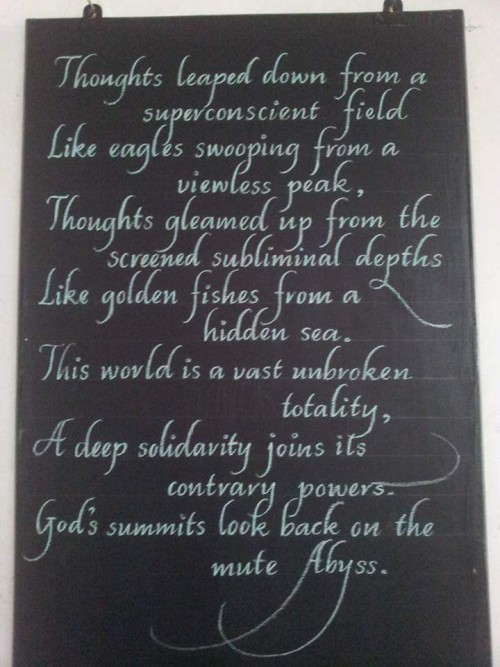 Thoughts leaped down from a
superconscient field
Like eagles swooping from a
viewless peak,
Thoughts gleamed up from the
screened subliminal depths
Like golden fishes from a
hidden sea.
This world is a vast unbroken
totality,
A deep solidarity joins its
contrary powers.
God's summits look back on the
mute Abyss.